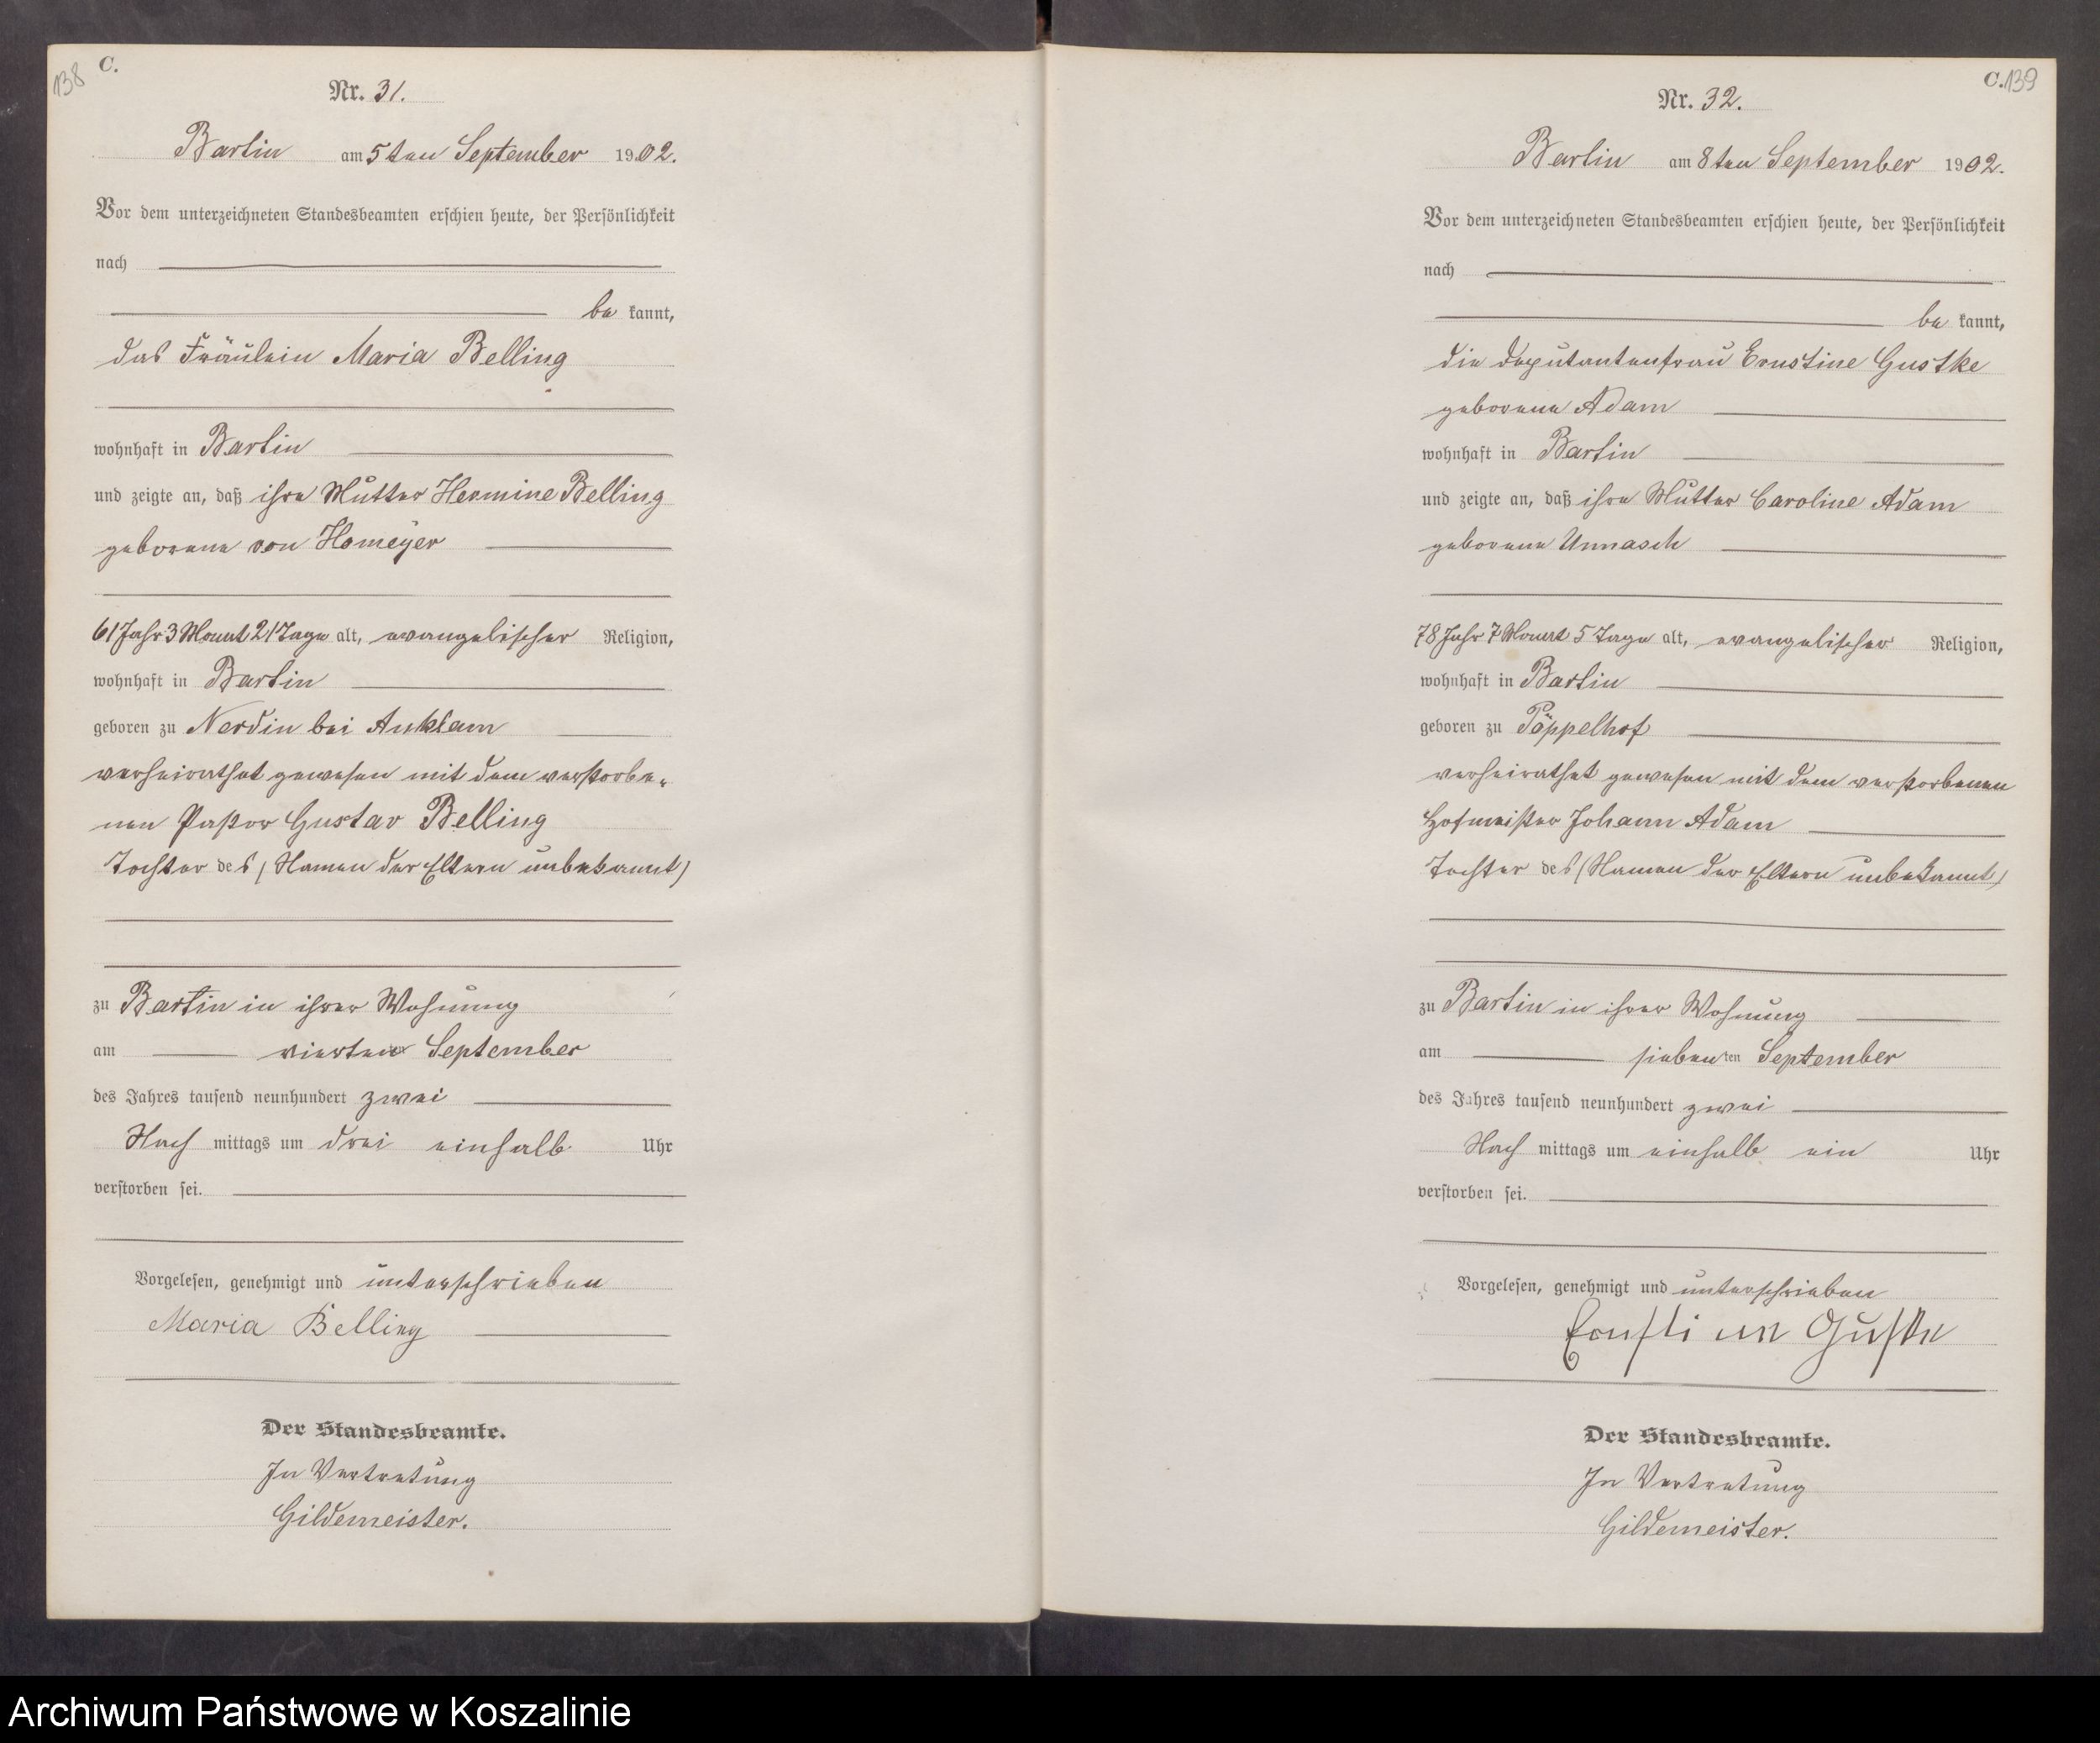 138
C.
Nr. 31.
Bartin am 5ten September 1902.
Vor dem unterzeichneten Standesbeamten erschien heute, der Persönlichkeit
nach
be kannt,
das Fräulein Maria Belling
wohnhaft in Bartin
und zeigte an, daß ihre Mutter Hermine Belling
geborene von Homeyer
61 Jahr 3 Monat 21 Tage alt, evangelischer Religion,
wohnhaft in Bartin
geboren zu Nerdin bei Anklam
verheirathet gewesen mit dem verstorbe-
nen Pastor Gustav Belling
Tochter des (Namen der Eltern unbekannt)
zu Bartin in ihrer Wohnung
am vierten September
des Jahres tausend neunhundert zwei
Nach mittags um drei einhalb Uhr
verstorben sei.
Vorgelesen, genehmigt und unterschrieben
Maria Belling
Der Standesbeamte.
In Vertretung
Gildemeister.
C. 139
Nr. 32.
Bartin am 8ten September 1902.
Vor dem unterzeichneten Standesbeamten erschien heute, der Persönlichkeit
nach
be kannt,
die Deputantenfrau Ernstine Gustke
geborene Adam
wohnhaft in Bartin
und zeigte an, daß ihre Mutter Caroline Adam
geborene Unnasch
78 Jahr 7 Monat 5 Tage alt, evangelischer Religion,
wohnhaft in Bartin
geboren zu Pöppelhof
verheirathet gewesen mit dem verstorbenen
Hofmeister Johann Adam
Tochter des (Namen der Eltern unbekannt)
zu Bartin in ihrer Wohnung
am siebenten September
des Jahres tausend neunhundert zwei
Nach mittags um einhalb ein Uhr
verstorben sei.
Vorgelesen, genehmigt und unterschrieben
Ernstine Gustke
Der Standesbeamte.
In Vertretung
Gildemeister.
Archiwum Państwowe w Koszalinie